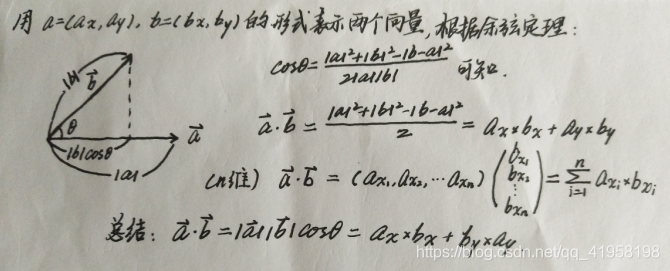 用 a=(ax, ay), b=(bx, by) 的形式表示两个向量,根据余弦定理:
cosθ = (|a|²+|b|²-|b-a|²)/(2|a||b|) 可知.
|b| b⃗
θ
|b|cosθ
|a|
a⃗
a⃗·b⃗ = (|a|²+|b|²-|b-a|²)/2 = ax*bx + ay*by
(n维) a⃗·b⃗ = (ax₁, ax₂, ···axₙ) (bx₁ bx₂ ⋮ bxₙ) = Σⁿᵢ₌₁ axᵢ*bxᵢ
总结: a⃗·b⃗ = |a⃗||b⃗|cosθ = ax×bx + by×ay
https://blog.csdn.net/qq_41958198